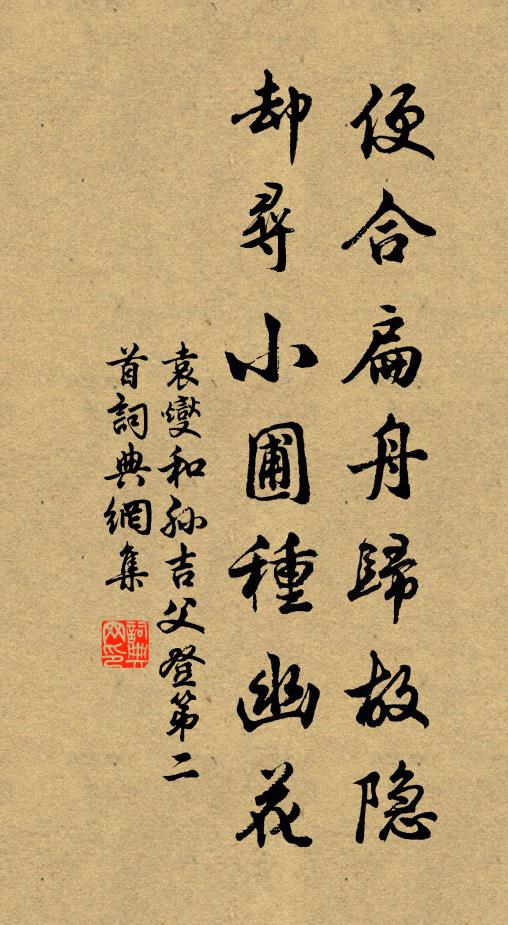 便合扁舟歸故隐
却尋小圃種幽花
袁燮和孙吉父登第二
首詞典網集
詞典網印